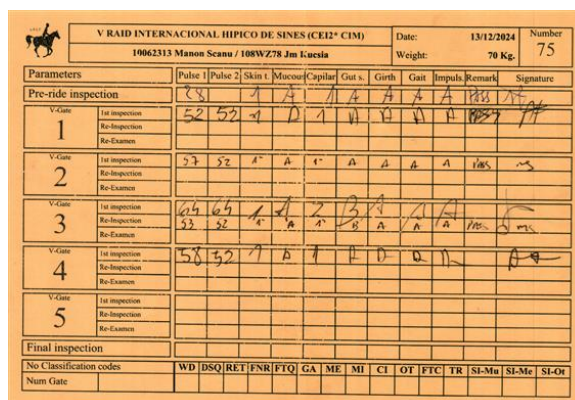 V RAID INTERNACIONAL HIPICO DE SINES (CEI2* CIM) Date: 13/12/2024 Number
10062313 Manon Scanu / 108WZ78 Jm Kucsia Weight: 70 Kg. 75
Parameters Pulse 1 Pulse 2 Skin t. Mucous Capilar Gut s. Girth Gait Impuls. Remark Signature
Pre-ride inspection 28 1 A 1 A A A A PASS
V-Gate 1 1st inspection 52 52 1 A 1 A A A A PASS
Re-Inspection
Re-Examen
V-Gate 2 1st inspection 57 52 1 A 1 A A A A PASS
Re-Inspection
Re-Examen
V-Gate 3 1st inspection 65 65 1 A 2 B A A A
Re-Inspection 53 52 1 A 1 B A A A PASS
Re-Examen
V-Gate 4 1st inspection 58 52 1 A 1
Re-Inspection
Re-Examen
V-Gate 5 1st inspection
Re-Inspection
Re-Examen
Final inspection
No Classification codes WD DSQ RET FNR FTQ GA ME MI CI OT FTC TR SI-Mu SI-Me SI-Ot
Num Gate